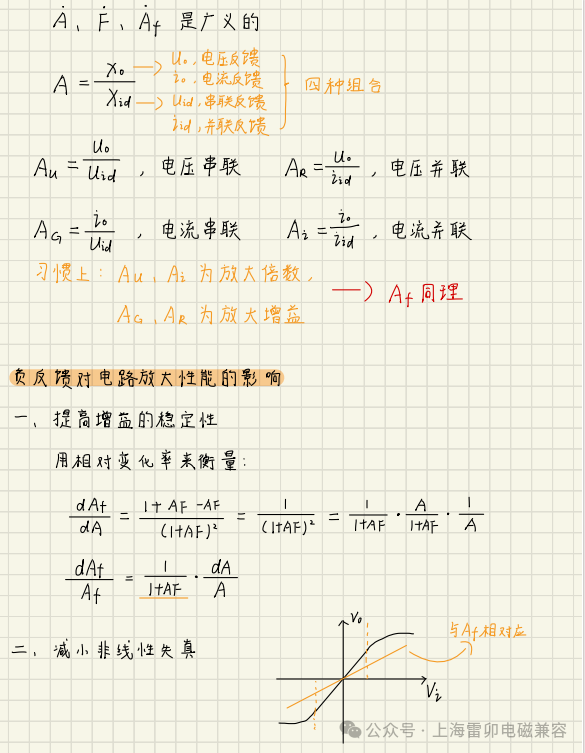 Ȧ、Ḟ、Ȧf 是广义的
A = Xo/Xid
uo,电压反馈
io,电流反馈
uid,串联反馈
iid,并联反馈
四种组合
Au = uo/uid ,电压串联 AR = uo/iid ,电压并联
AG = io/uid ,电流串联 Ai = io/iid ,电流并联
习惯上: Au、Ai 为放大倍数,
AG、AR 为放大增益
Af 同理
负反馈对电路放大性能的影响
一、提高增益的稳定性
用相对变化率来衡量:
dAf/dA = (1+AF-AF)/(1+AF)² = 1/(1+AF)² = 1/(1+AF) · A/(1+AF) · 1/A
dAf/Af = 1/(1+AF) · dA/A
二、减小非线性失真
Vo
与Af相对应
Vi
公众号 · 上海雷卯电磁兼容